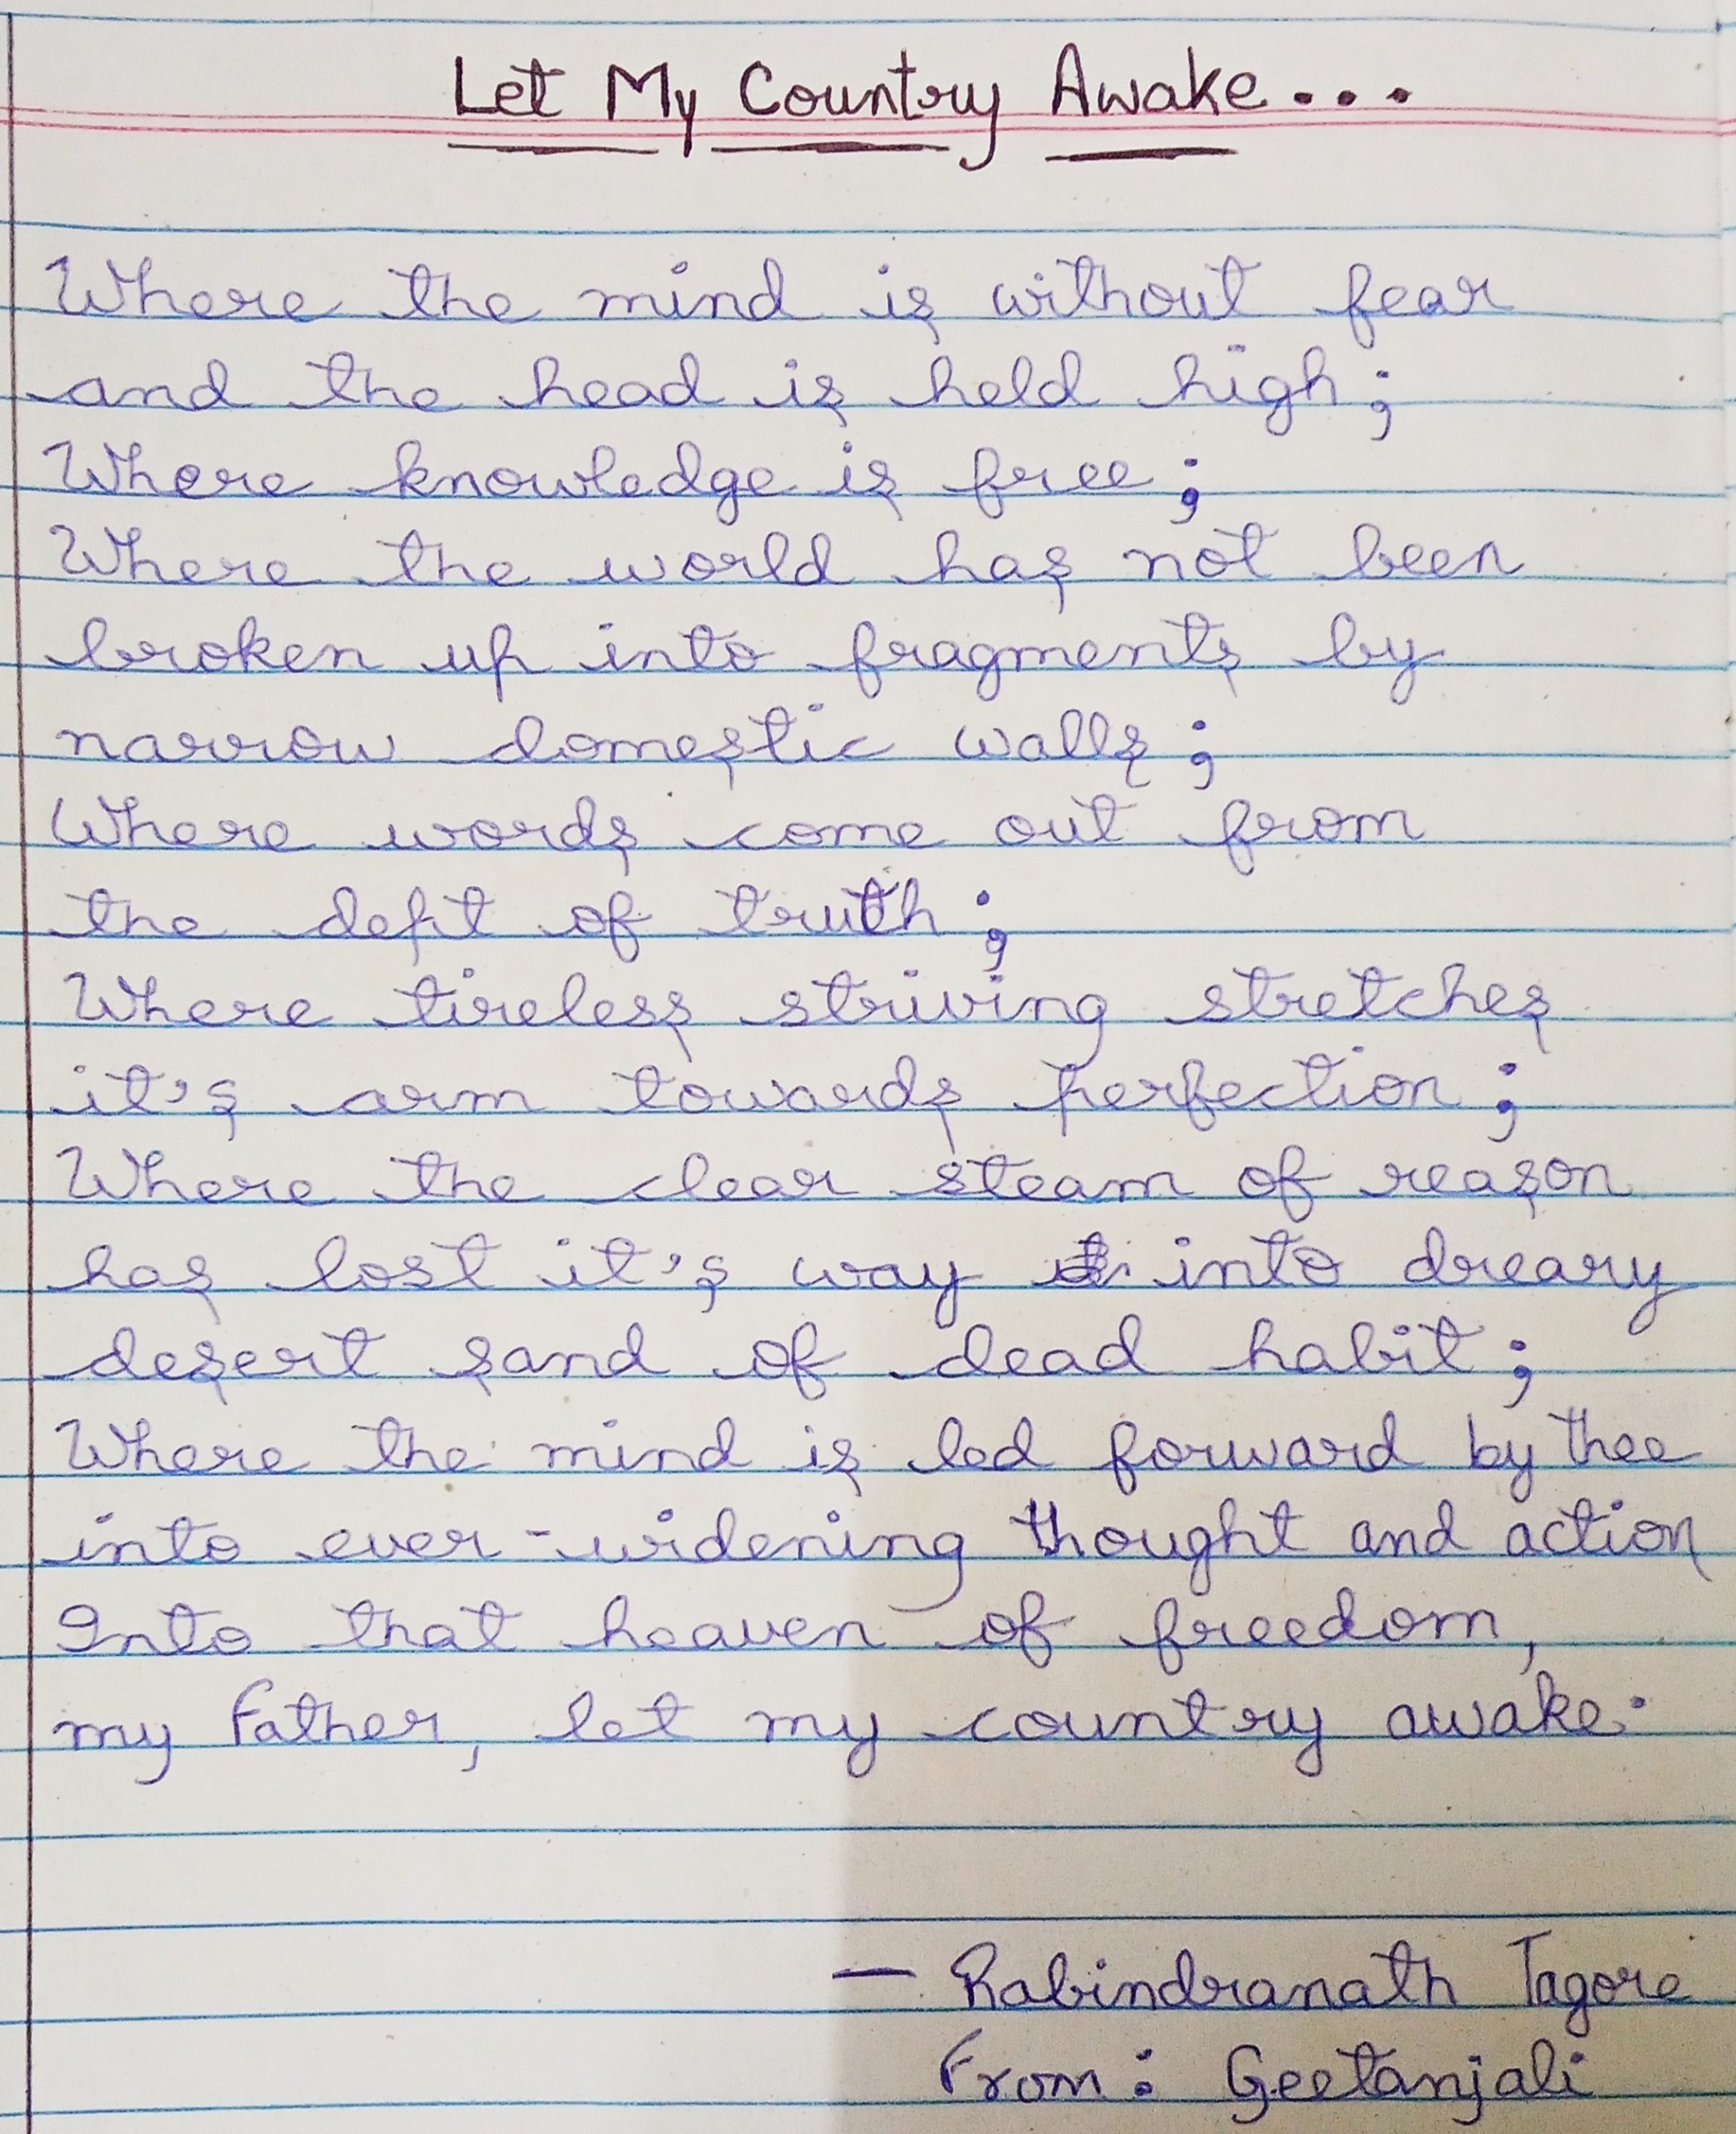 Let My Country Awake...
Where the mind is without fear
and the head is held high;
Where knowledge is free;
Where the world has not been
broken up into fragments by
narrow domestic walls;
Where words come out from
the dept of truth;
Where tireless striving stretches
it's arm towards perfection;
Where the clear steam of reason
has lost it's way into dreary
desert sand of dead habit;
Where the mind is led forward by thee
into ever-widening thought and action
Into that heaven of freedom,
my Father, let my country awake.
— Rabindranath Tagore
From: Geetanjali